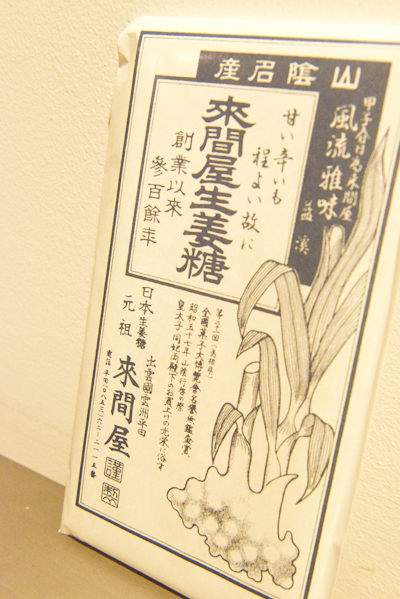 山陰名産
風流雅味
甘い辛いも
程よい故に
來間屋生姜糖
創業以来
參百餘年
全國菓子大博覧會名譽無鑑査賞
昭和五十七年山陰行啓の際
皇太子同妃両殿下のお買上げの光栄に浴す
出雲國雲州平田
日本生姜糖
元祖
來間屋
謹製
電話平田(〇八五三)六二-二一一五番